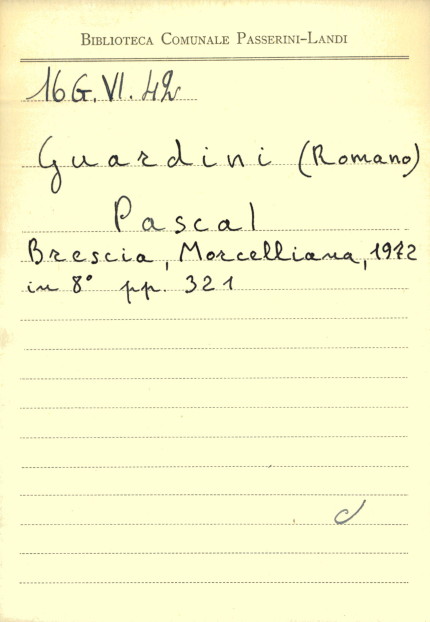 BIBLIOTECA COMUNALE PASSERINI-LANDI
16 G. VI. 42
Guardini (Romano)
Pascal
Brescia, Morcelliana, 1972
in 8° pp. 321